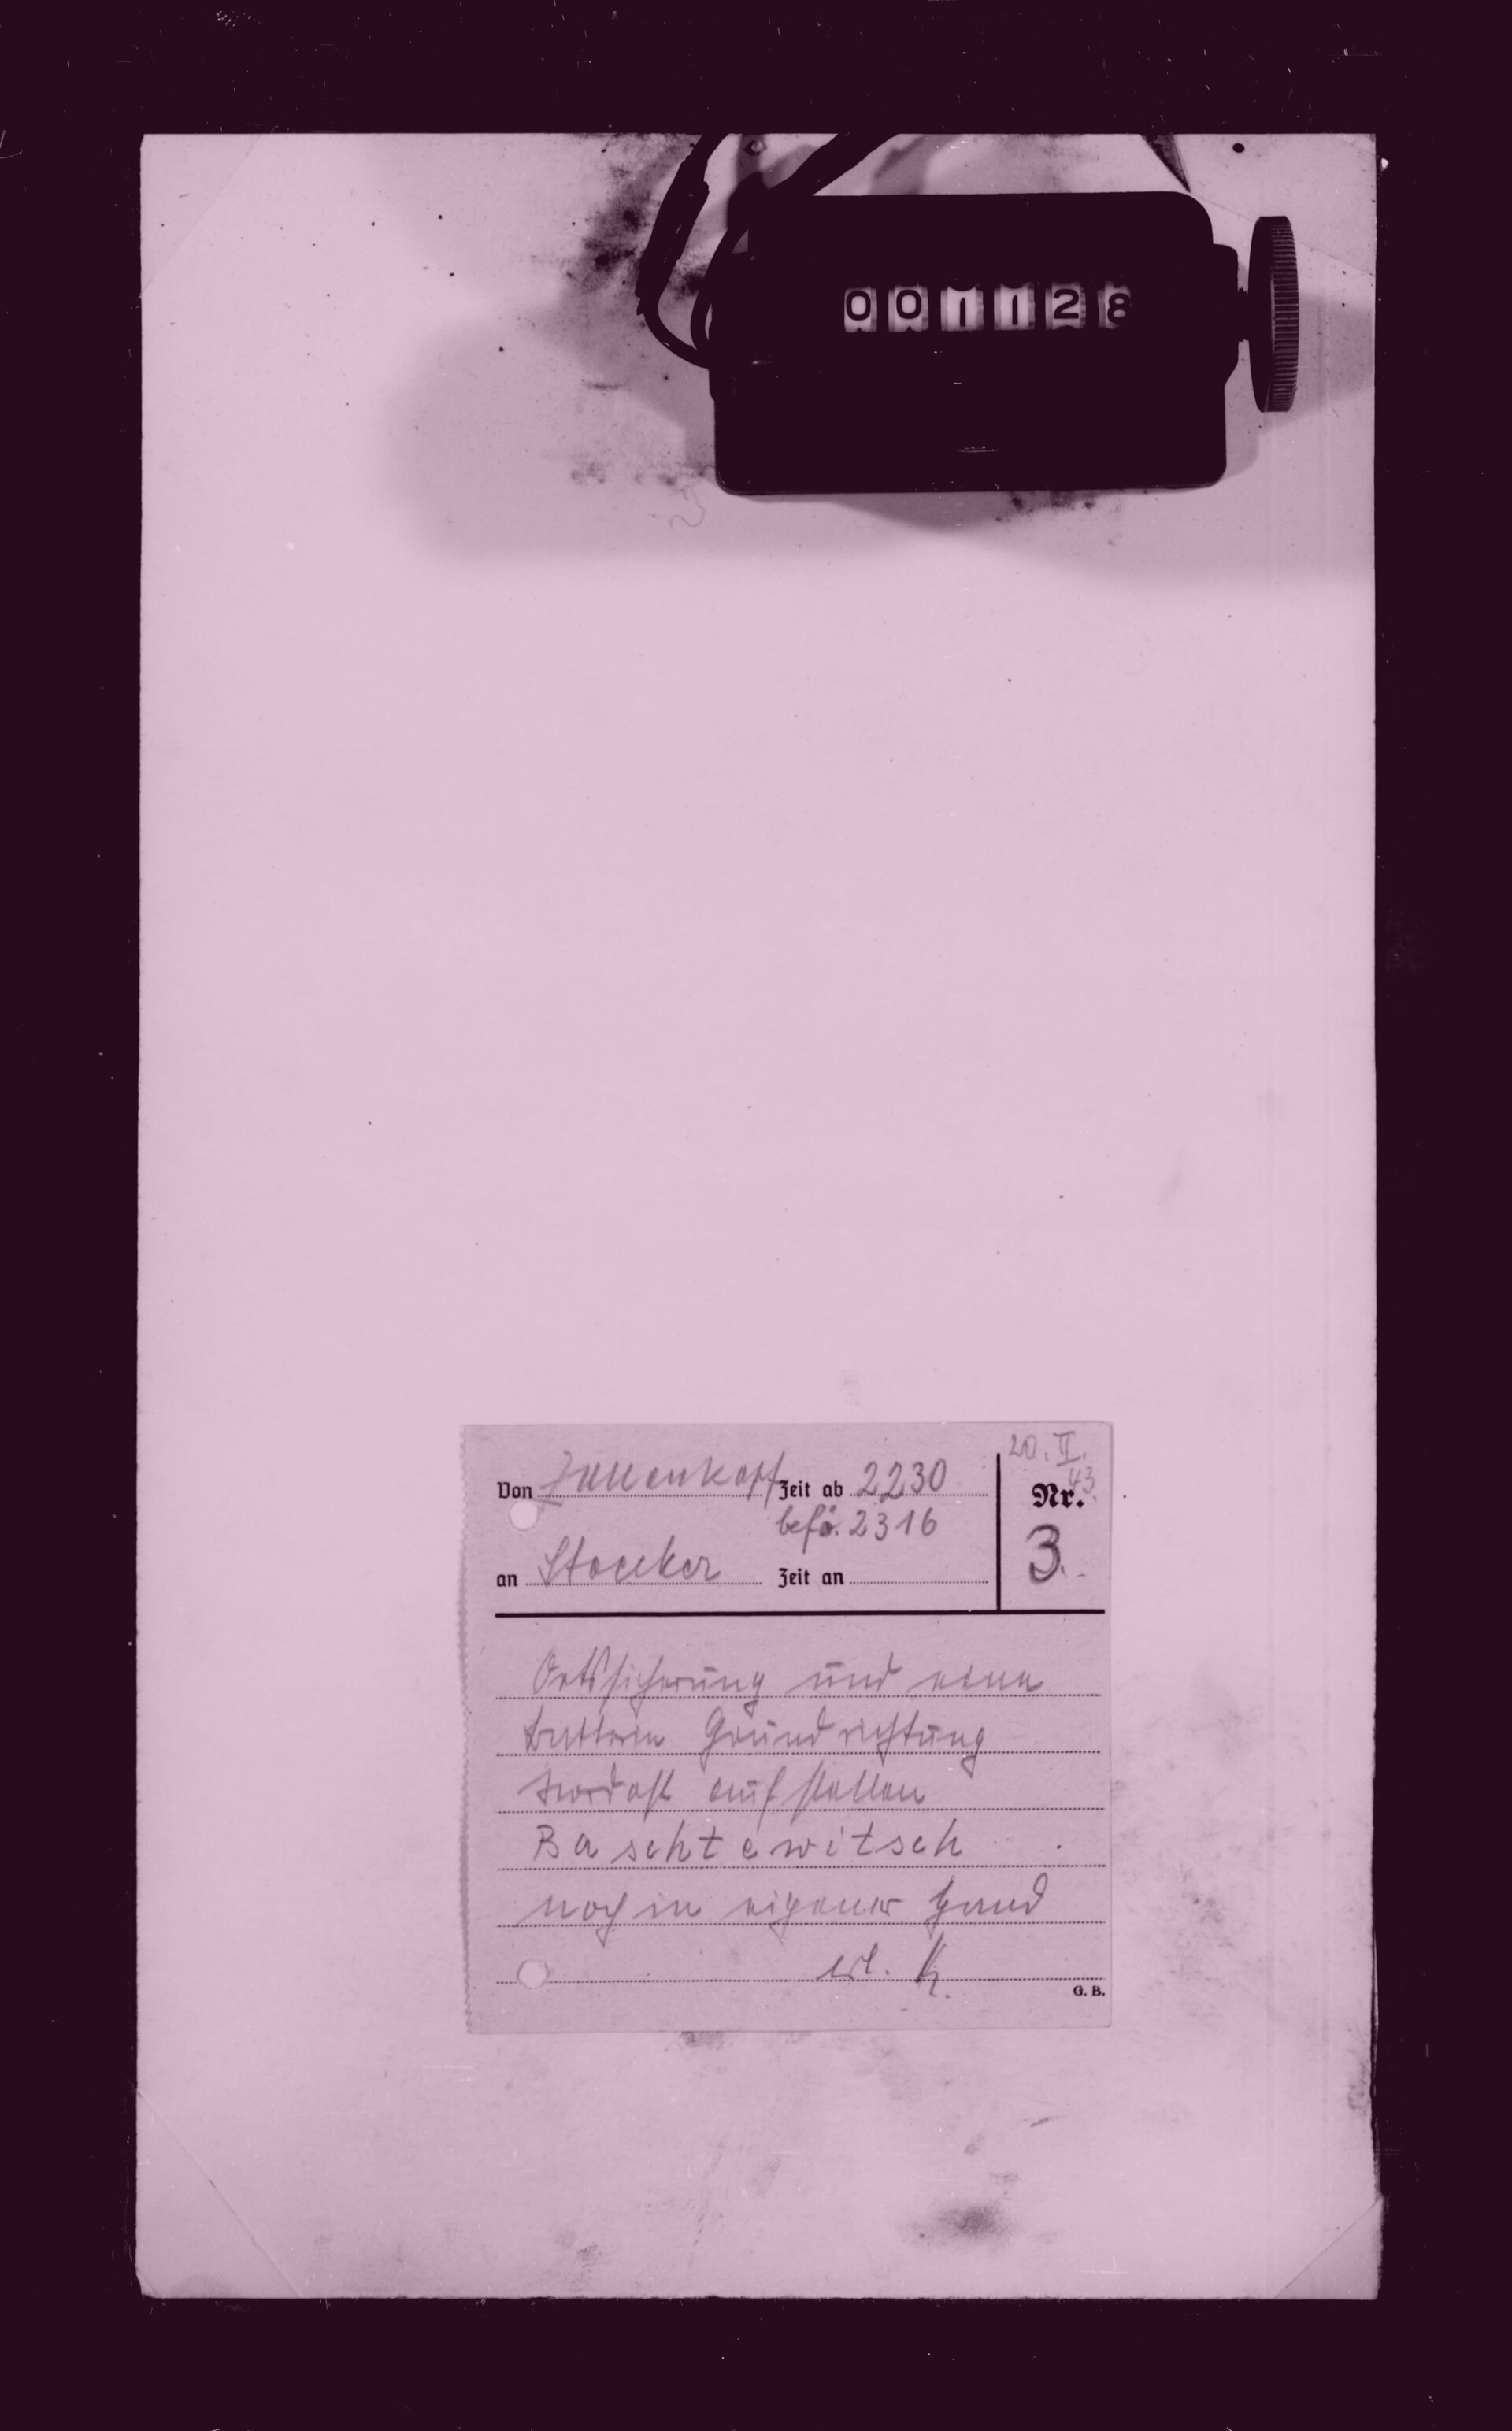 001128
20. II. 43.
Von Zellenkopf Zeit ab 2230
Nr. 3.
befö. 2316
an Stoecker Zeit an
Ortssicherung und eine
Batterie Grundrichtung
Nordost aufstellen
Baschtewitsch
noch in eigener Hand
erl. K.
G. B.